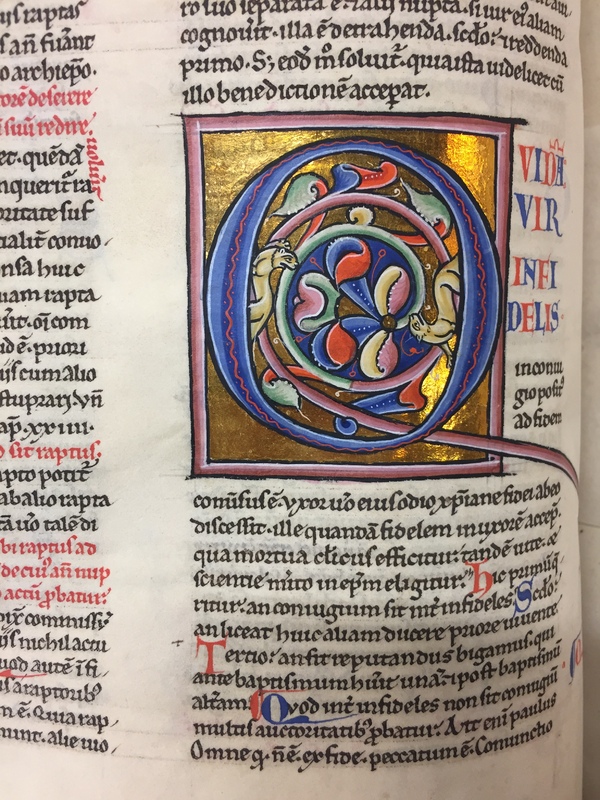 uis raptas
s añ fuant
o archiepo.
ore deseire
i suu redire.
uolun
et. quedā
nquerit ra
oritate suf
cialit conuo
onsa huic
uam rapta
uit. qi com
idē. priori
iis cum alio
stuprari; uñ
ap. xx iiii.
d sit raptus.
apto potit
ab alio rapta
tā uo talē di
bi raptus ad
de cui9 añ nup
actū pbatur:
iis nichil actu
uod autē i fi
a raptorib9
m ē. Qua rap
nunt. alie uio
ro suo separata ē. 7 alii nupta. si uir ei9 aliam
cognouit. illa ē detrahenda. scdo: 7 reddenda
primo. S; eod m̄ soluit. qua ista uidelicet cū
illo benedictionē acceperat.
QVIDĀ
VIR
INFI
DELIS
in coniu
gio posit9
ad fidem
conusus ē. yxor uo eius odio xpiane fidei ab eo
discessit. ille quandā fidelem in uxorē accep.
qua mortua clicus efficitur: tandē uite. ac
scientie mito in epm eligitur. hic primū q
ritur. an coniugium sit int infideles. Scdo:
an liceat huic aliam ducere priore uiuente
Tertio: an sit reputandus bigamus. qui
ante baptismum huit unā: 7 post baptismū
altam. Quod int infideles non sit coniugiū
multis auctoritatib9 pbatur. Ait eni paulus
Omne q. ñ ē. ex fide. peccatum ē. Coniunctio